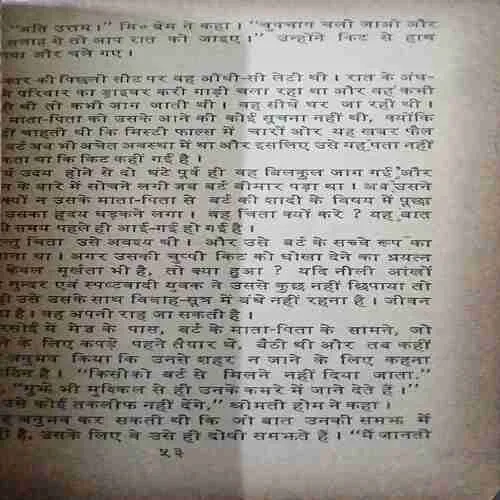 "अति उत्तम।" मि० ब्रेम ने कहा। "चुपचाप चली जाओ और
सलाह में तो आप रात को जाइए।" उन्होंने किट से हाथ
और चले गए।
कार की पिछली सीट पर वह औंधी-सी लेटी थी। रात के अंध-
परिवार का ड्राइवर करी गाड़ी चला रहा था और वह कभी
थी तो कभी जाग जाती थी। वह सीधे घर जा रही थी।
माता-पिता को उसके आने की कोई सूचना नहीं थी, क्योंकि
चाहती थी कि मिस्टी फाल्स में चारों ओर यह खबर फैल
बर्ट अब भी अचेत अवस्था में था और इसलिए उसे यह पता नहीं
सकता था कि किट कहीं गई है।
उदय होने से दो घंटे पूर्व ही वह बिलकुल जाग गई और
के बारे में सोचने लगी जब बर्ट बीमार पड़ा था। अब उसने
क्यों न उसके माता-पिता से बर्ट की शादी के विषय में पूछा
उसका हृदय धड़कने लगा। वह चिंता क्यों करे ? यह बात
समय पहले ही आई-गई हो गई है।
चिंता उसे अवश्य थी। और उसे बर्ट के सच्चे रूप का
था। अगर उसकी चुप्पी किट को धोखा देने का प्रयत्न
केवल मूर्खता भी है, तो क्या हुआ ? यदि नीली आंखों
सुन्दर एवं स्पष्टवादी युवक ने उससे कुछ नहीं छिपाया तो
उसे उसके साथ विवाह-सूत्र में बंधे नहीं रहना है। जीवन
है। वह अपनी राह जा सकती है।
रसोई में मेड के पास, बर्ट के माता-पिता के सामने, जो
के लिए कपड़े पहने तैयार थे, बैठी थी और तब कहीं
अनुभव किया कि उनसे शहर न जाने के लिए कहना
कठिन है। "किसीको बर्ट से मिलने नहीं दिया जाता।"
"मुझे भी मुश्किल से ही उनके कमरे में जाने देते हैं।"
उसे कोई तकलीफ नहीं देंगे," श्रीमती होम ने कहा।
अनुभव कर सकती थी कि जो बात उनकी समझ में
है, उसके लिए वे उसे ही दोषी समझते हैं। "मैं जानती
५३